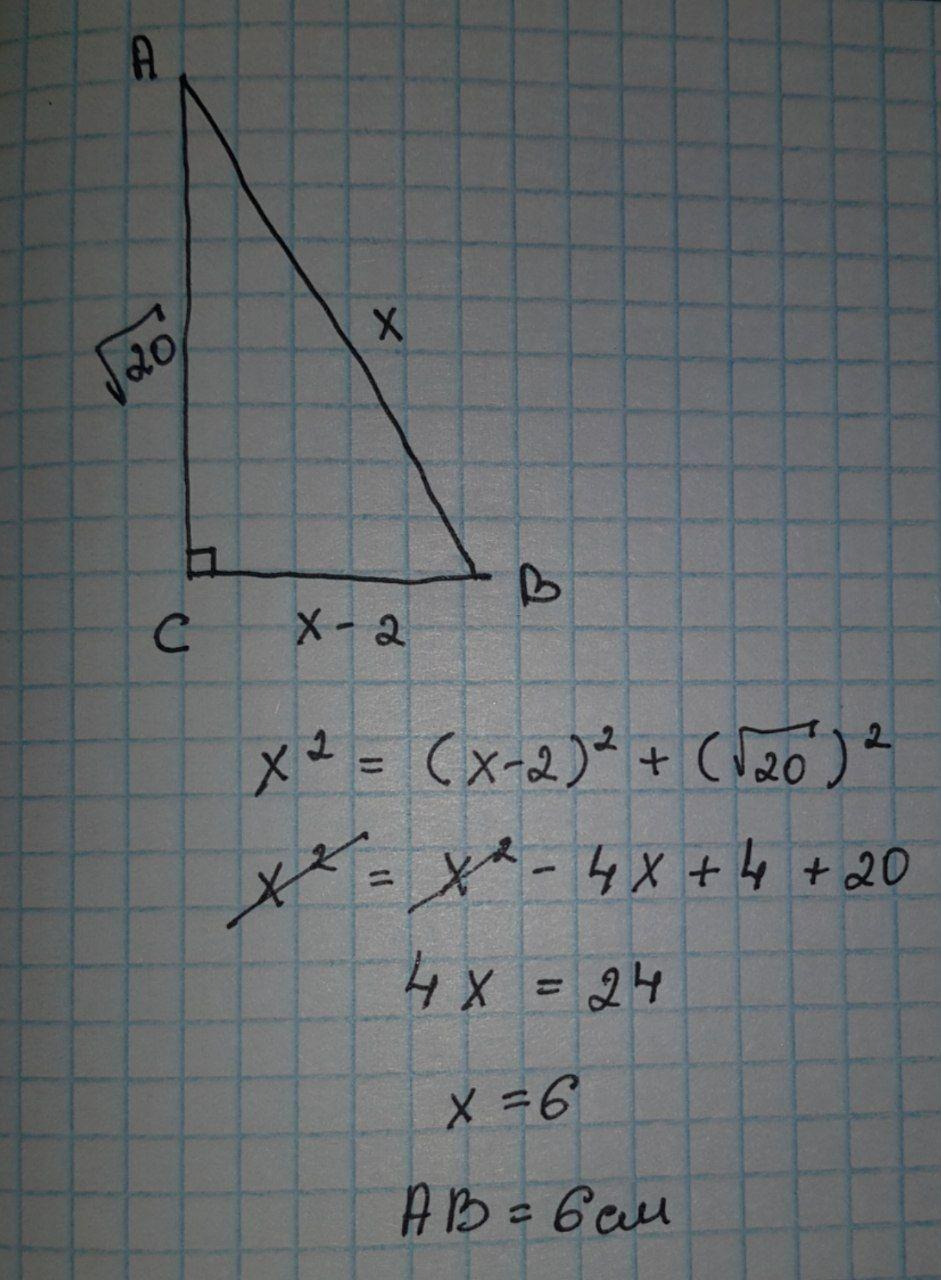 A
√20
x
C
B
x - 2
x² = (x-2)² + (√20)²
x² = x² - 4x + 4 + 20
4x = 24
x = 6
AB = 6см